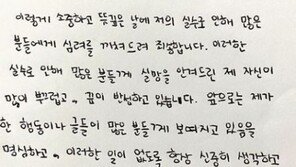 이렇게 소중하고 뜻깊은 날에 저의 실수로 인해 많은
분들에게 심려를 끼쳐드려 죄송합니다. 이러한
실수로 인해 많은 분들께 실망을 안겨드린 제 자신이
많이 부끄럽고, 깊이 반성하고 있습니다. 앞으로는 제가
한 행동이나 글들이 많은 분들께 보여지고 있음을
명심하고, 이러한 일이 없도록 항상 신중히 생각하고